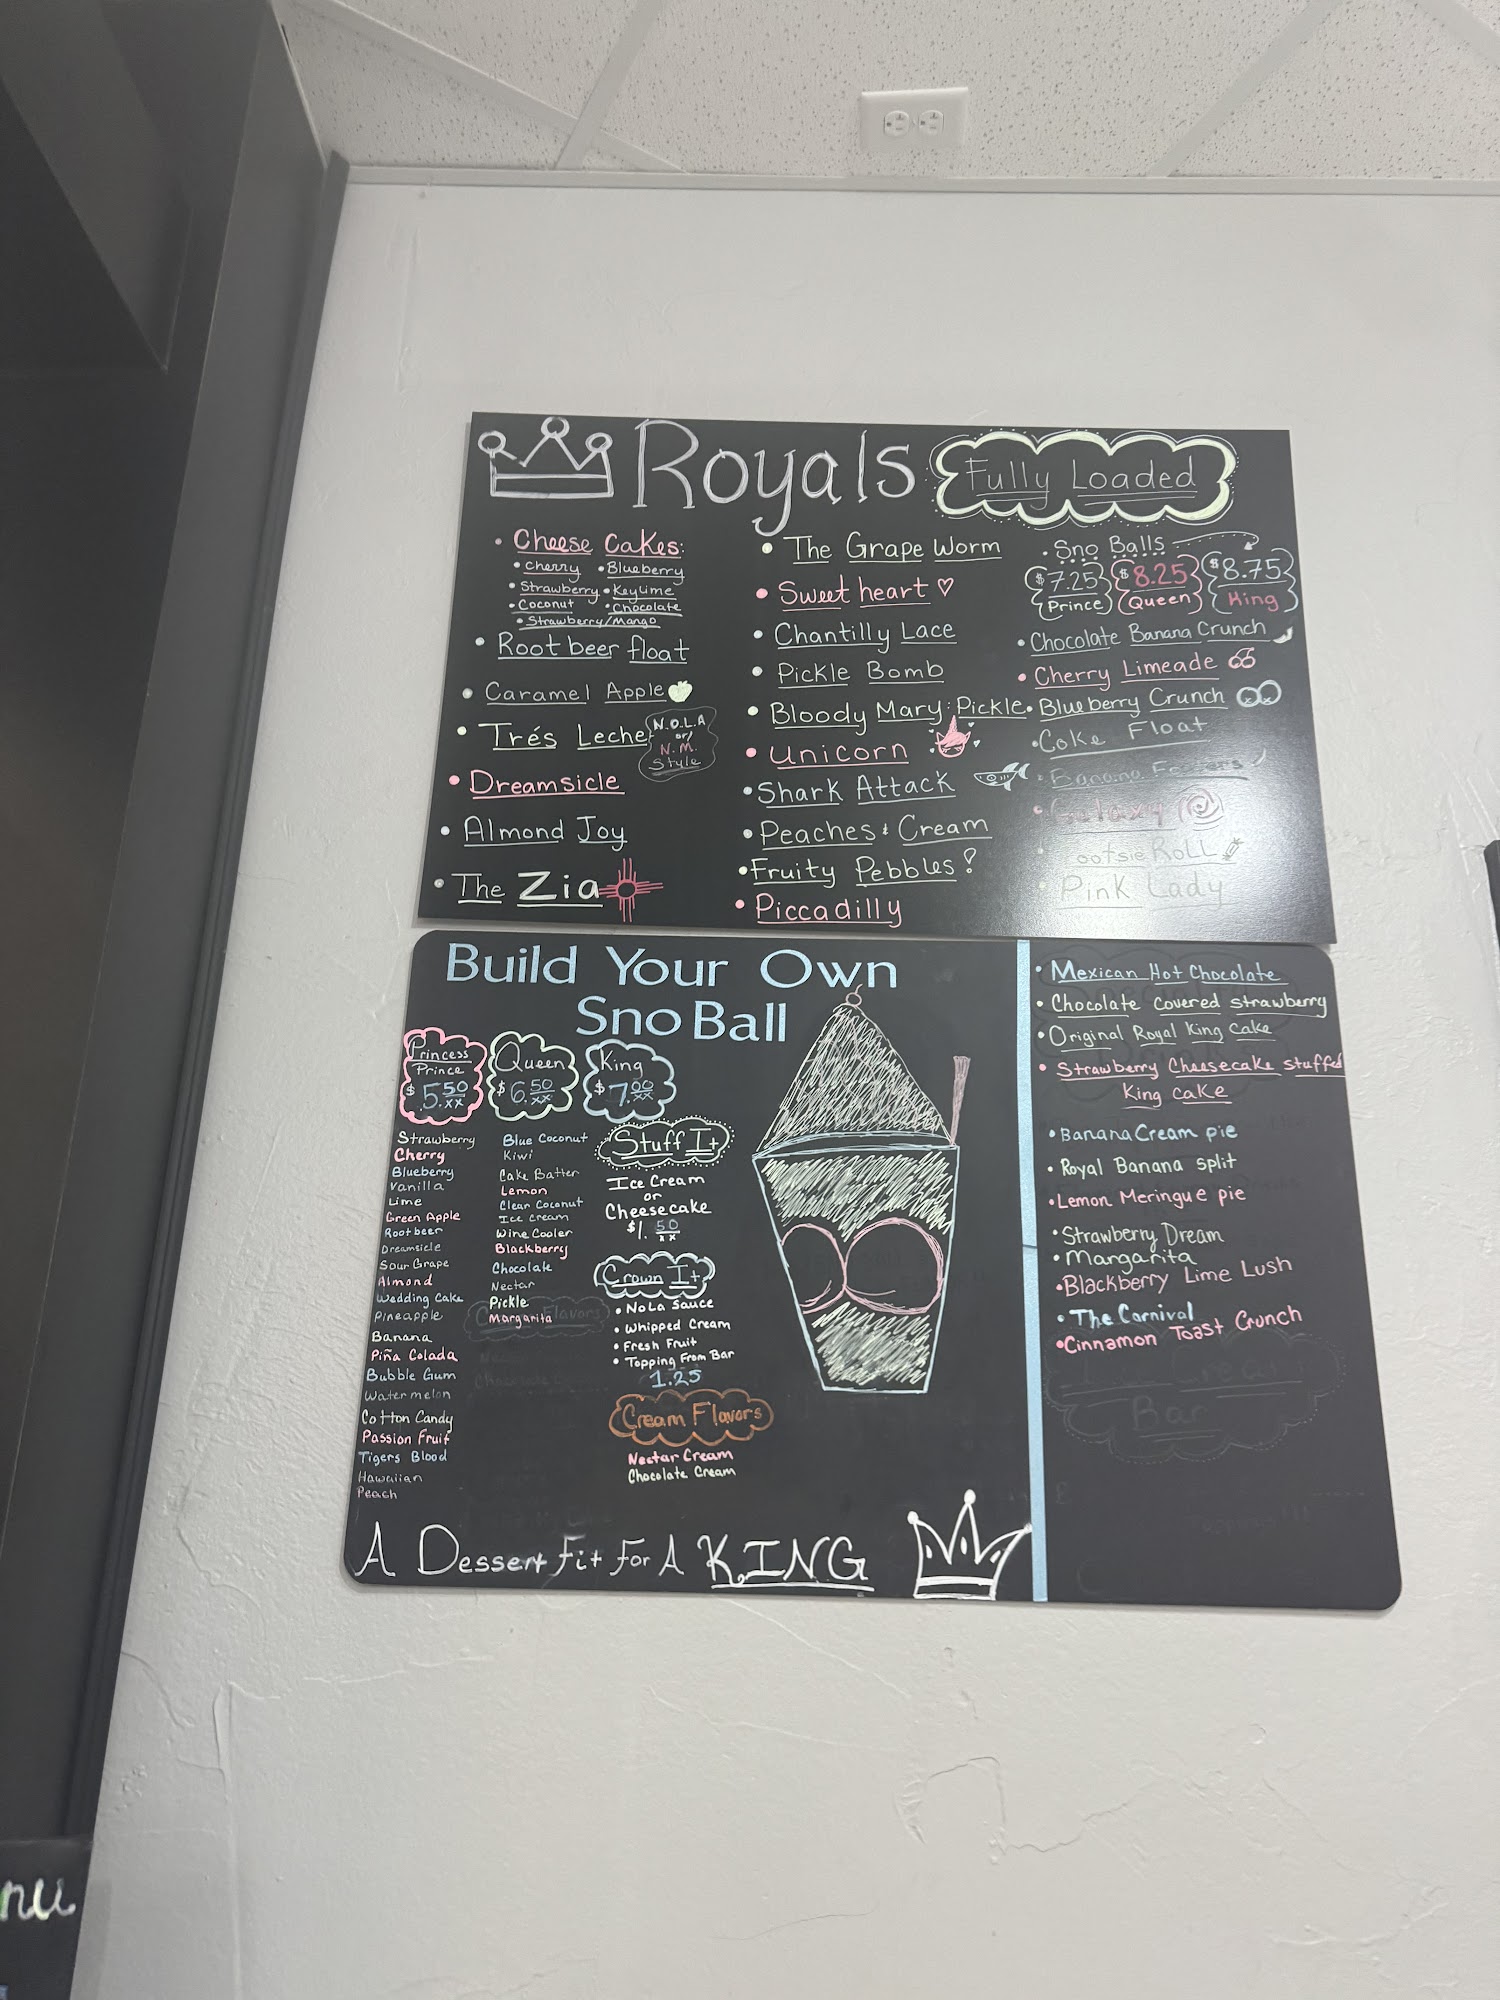 Royals
Fully Loaded
• Cheese Cakes:
• Cherry • Blueberry
• Strawberry • Keylime
• Coconut • Chocolate
• Strawberry/Mango
• Root beer float
• Caramel Apple
• Trés Leche
N.O.L.A
or/
N.M.
Style
• Dreamsicle
• Almond Joy
• The Zia
• The Grape Worm
• Sweet heart
• Chantilly Lace
• Pickle Bomb
• Bloody Mary: Pickle
• Unicorn
• Shark Attack
• Peaches & Cream
• Fruity Pebbles!
• Piccadilly
• Sno Balls
$7.25 $8.25 $8.75
Prince Queen King
• Chocolate Banana Crunch
• Cherry Limeade
• Blueberry Crunch
• Coke Float
• Banana
• Galaxy
• Tootsie Roll
• Pink Lady
Build Your Own
Sno Ball
Princess
Prince
$5.50/xx
Queen
$6.50/xx
King
$7.00/xx
Strawberry
Cherry
Blueberry
Vanilla
Lime
Green Apple
Rootbeer
Dreamsicle
Sour Grape
Almond
Wedding Cake
Pineapple
Banana
Piña Colada
Bubble Gum
Watermelon
Cotton Candy
Passion Fruit
Tigers Blood
Hawaiian
Peach
Blue Coconut
Kiwi
Cake Batter
Lemon
Clear Coconut
Ice Cream
Wine Cooler
Blackberry
Chocolate
Nectar
Pickle
Margarita
Stuff It
Ice Cream
or
Cheesecake
$1.50/xx
Crown It
• Nola Sauce
• Whipped Cream
• Fresh Fruit
• Topping From Bar
1.25
Cream Flavors
Nectar Cream
Chocolate Cream
A Dessert Fit For A KING
• Mexican Hot Chocolate
• Chocolate covered strawberry
• Original Royal King Cake
• Strawberry Cheesecake stuffed
King cake
• Banana Cream pie
• Royal Banana split
• Lemon Meringue pie
• Strawberry Dream
• Margarita
• Blackberry Lime Lush
• The Carnival
• Cinnamon Toast Crunch
Bar
nu